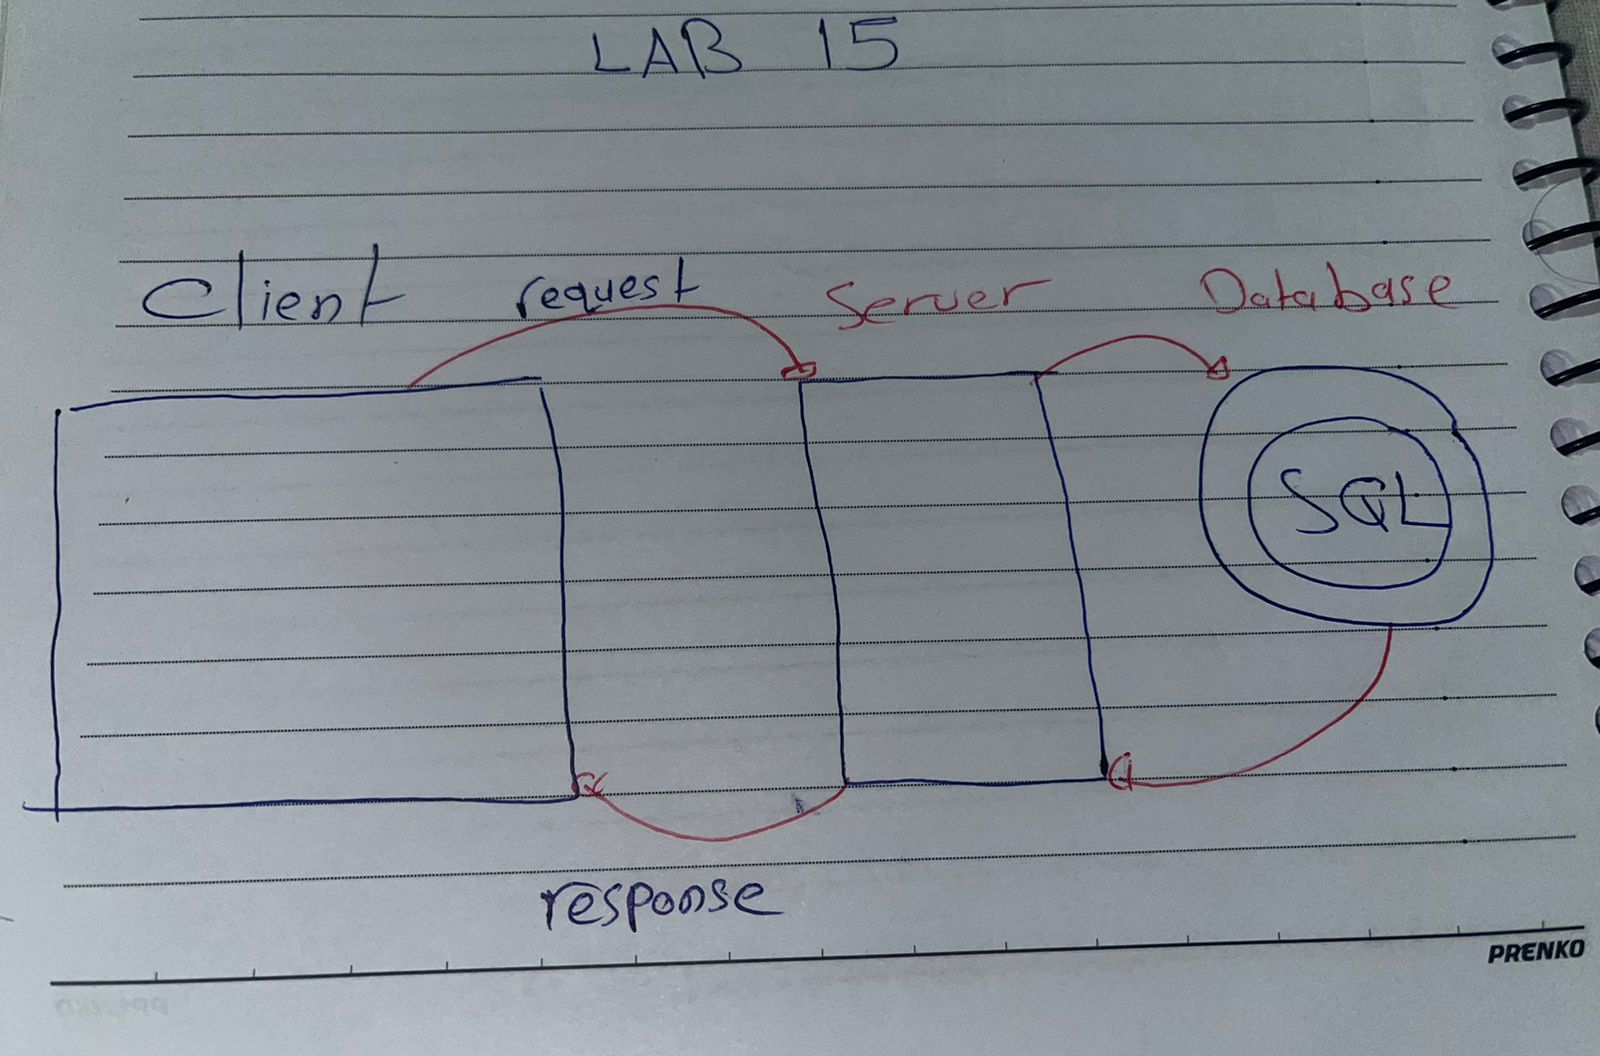 LAB 15
Client request Server Database
SQL
response
PRENKO